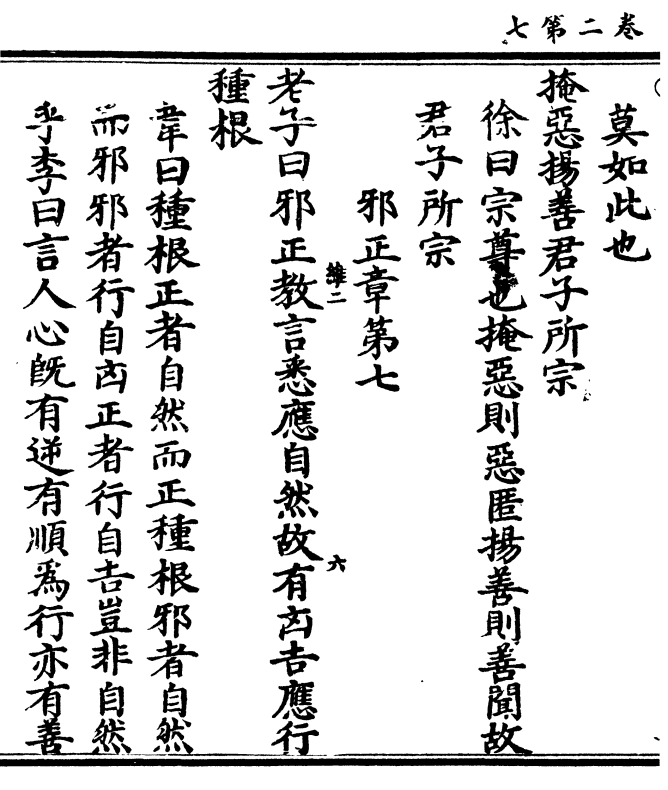 卷二第七
莫如此也
掩惡揚善君子所宗
徐曰宗尊也掩惡則惡匿揚善則善聞故
君子所宗
邪正章第七
維二
六
老子曰邪正教言悉應自然故有凶吉應行
種根
韋曰種根正者自然而正種根邪者自然
而邪邪者行自凶正者行自吉豈非自然
乎李曰言人心旣有逆有順爲行亦有善